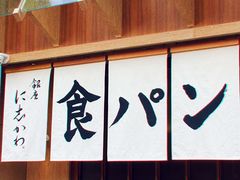 銀座
に志かわ
食パン